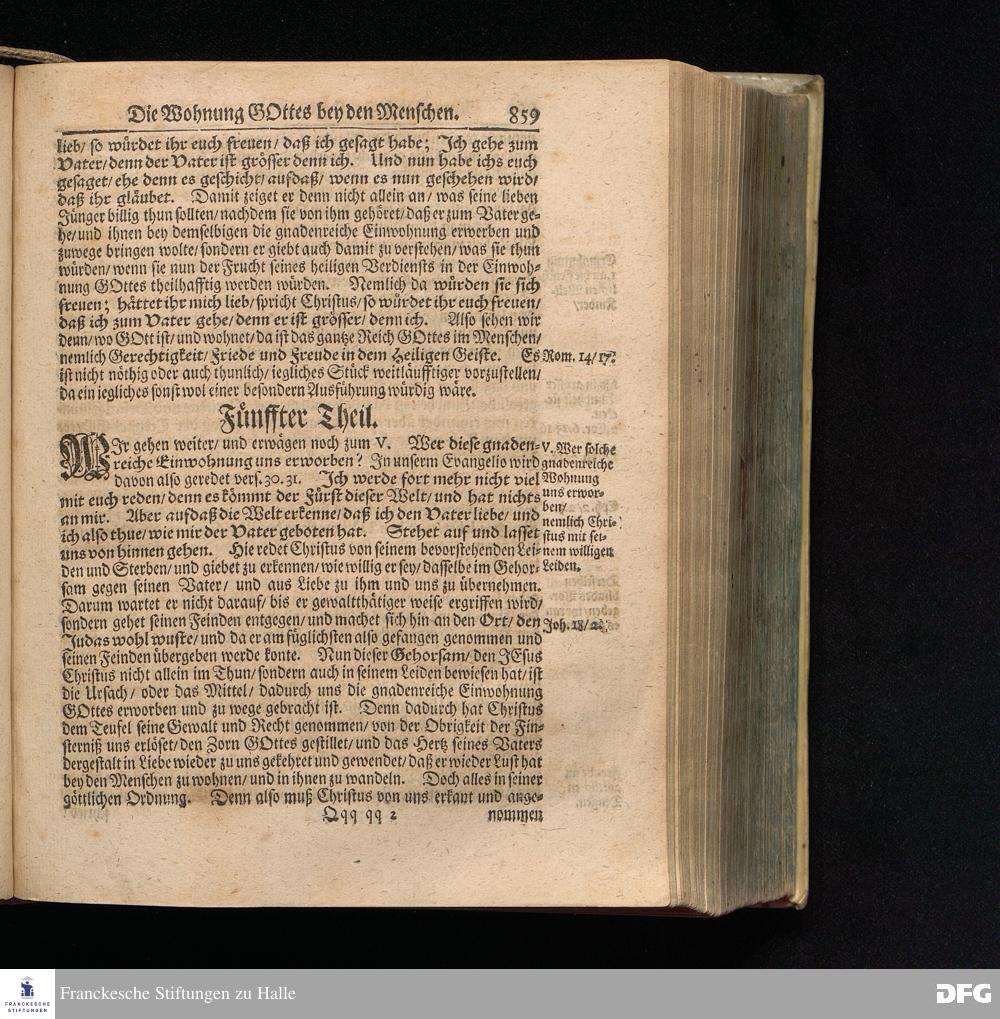 Die Wohnung GOttes bey den Menschen. 859
lieb/ so würdet ihr euch freuen/ daß ich gesagt habe; Ich gehe zum
Vater/ denn der Vater ist grösser denn ich. Und nun habe ichs euch
gesaget/ ehe denn es geschicht/ aufdaß/ wenn es nun geschehen wird/
daß ihr gläubet. Damit zeiget er denn nicht allein an/ was seine lieben
Jünger billig thun sollten/ nachdem sie von ihm gehöret/ daß er zum Vater ge-
he/ und ihnen bey demselbigen die gnadenreiche Einwohnung erwerben und
zuwege bringen wolte/ sondern er giebt auch damit zu verstehen/ was sie thun
würden/ wenn sie nun der Frucht seines heiligen Verdiensts in der Einwoh-
nung GOttes theilhafftig werden würden. Nemlich da würden sie sich
freuen; hättet ihr mich lieb/ spricht Christus/ so würdet ihr euch freuen/
daß ich zum Vater gehe/ denn er ist grösser/ denn ich. Also sehen wir
denn/ wo GOtt ist/ und wohnet/ da ist das gantze Reich GOttes im Menschen/
nemlich Gerechtigkeit/ Friede und Freude in dem Heiligen Geiste. Es
Rom. 14/17.
ist nicht nöthig oder auch thunlich/ iegliches Stück weitläufftiger vorzustellen/
da ein iegliches sonst wol einer besondern Ausführung würdig wäre.
Fünffter Theil.
WIr gehen weiter/ und erwägen noch zum V. Wer diese gnaden-
reiche Einwohnung uns erworben? In unserm Evangelio wird
davon also geredet vers. 30. 31. Ich werde fort mehr nicht viel
mit euch reden/ denn es kömmt der Fürst dieser Welt/ und hat nichts
an mir. Aber aufdaß die Welt erkenne/ daß ich den Vater liebe/ und
ich also thue/ wie mir der Vater geboten hat. Stehet auf und lasset
uns von hinnen gehen. Hie redet Christus von seinem bevorstehenden Lei-
den und Sterben/ und giebet zu erkennen/ wie willig er sey/ dasselbe im Gehor-
sam gegen seinen Vater/ und aus Liebe zu ihm und uns zu übernehmen.
V. Wer solche
gnadenreiche
Wohnung
uns erwor-
ben/
nemlich Chri-
stus mit sei-
nem willigen
Leiden.
Darum wartet er nicht darauf/ bis er gewaltthätiger weise ergriffen wird/
sondern gehet seinen Feinden entgegen/ und machet sich hin an den Ort/ den
Joh. 18/
Judas wohl wuste/ und da er am füglichsten also gefangen genommen und
seinen Feinden übergeben werde konte. Nun dieser Gehorsam/ den JEsus
Christus nicht allein im Thun/ sondern auch in seinem Leiden bewiesen hat/ ist
die Ursach/ oder das Mittel/ dadurch uns die gnadenreiche Einwohnung
GOttes erworben und zu wege gebracht ist. Denn dadurch hat Christus
dem Teufel seine Gewalt und Recht genommen/ von der Obrigkeit der Fin-
sterniß uns erlöset/ den Zorn GOttes gestillet/ und das Hertz seines Vaters
dergestalt in Liebe wieder zu uns gekehret und gewendet/ daß er wieder Lust hat
bey den Menschen zu wohnen/ und in ihnen zu wandeln. Doch alles in seiner
göttlichen Ordnung. Denn also muß Christus von uns erkant und ange-
Qqq qq 2 nommen
FRANCKESCHE
STIFTUNGEN
Franckesche Stiftungen zu Halle
DFG